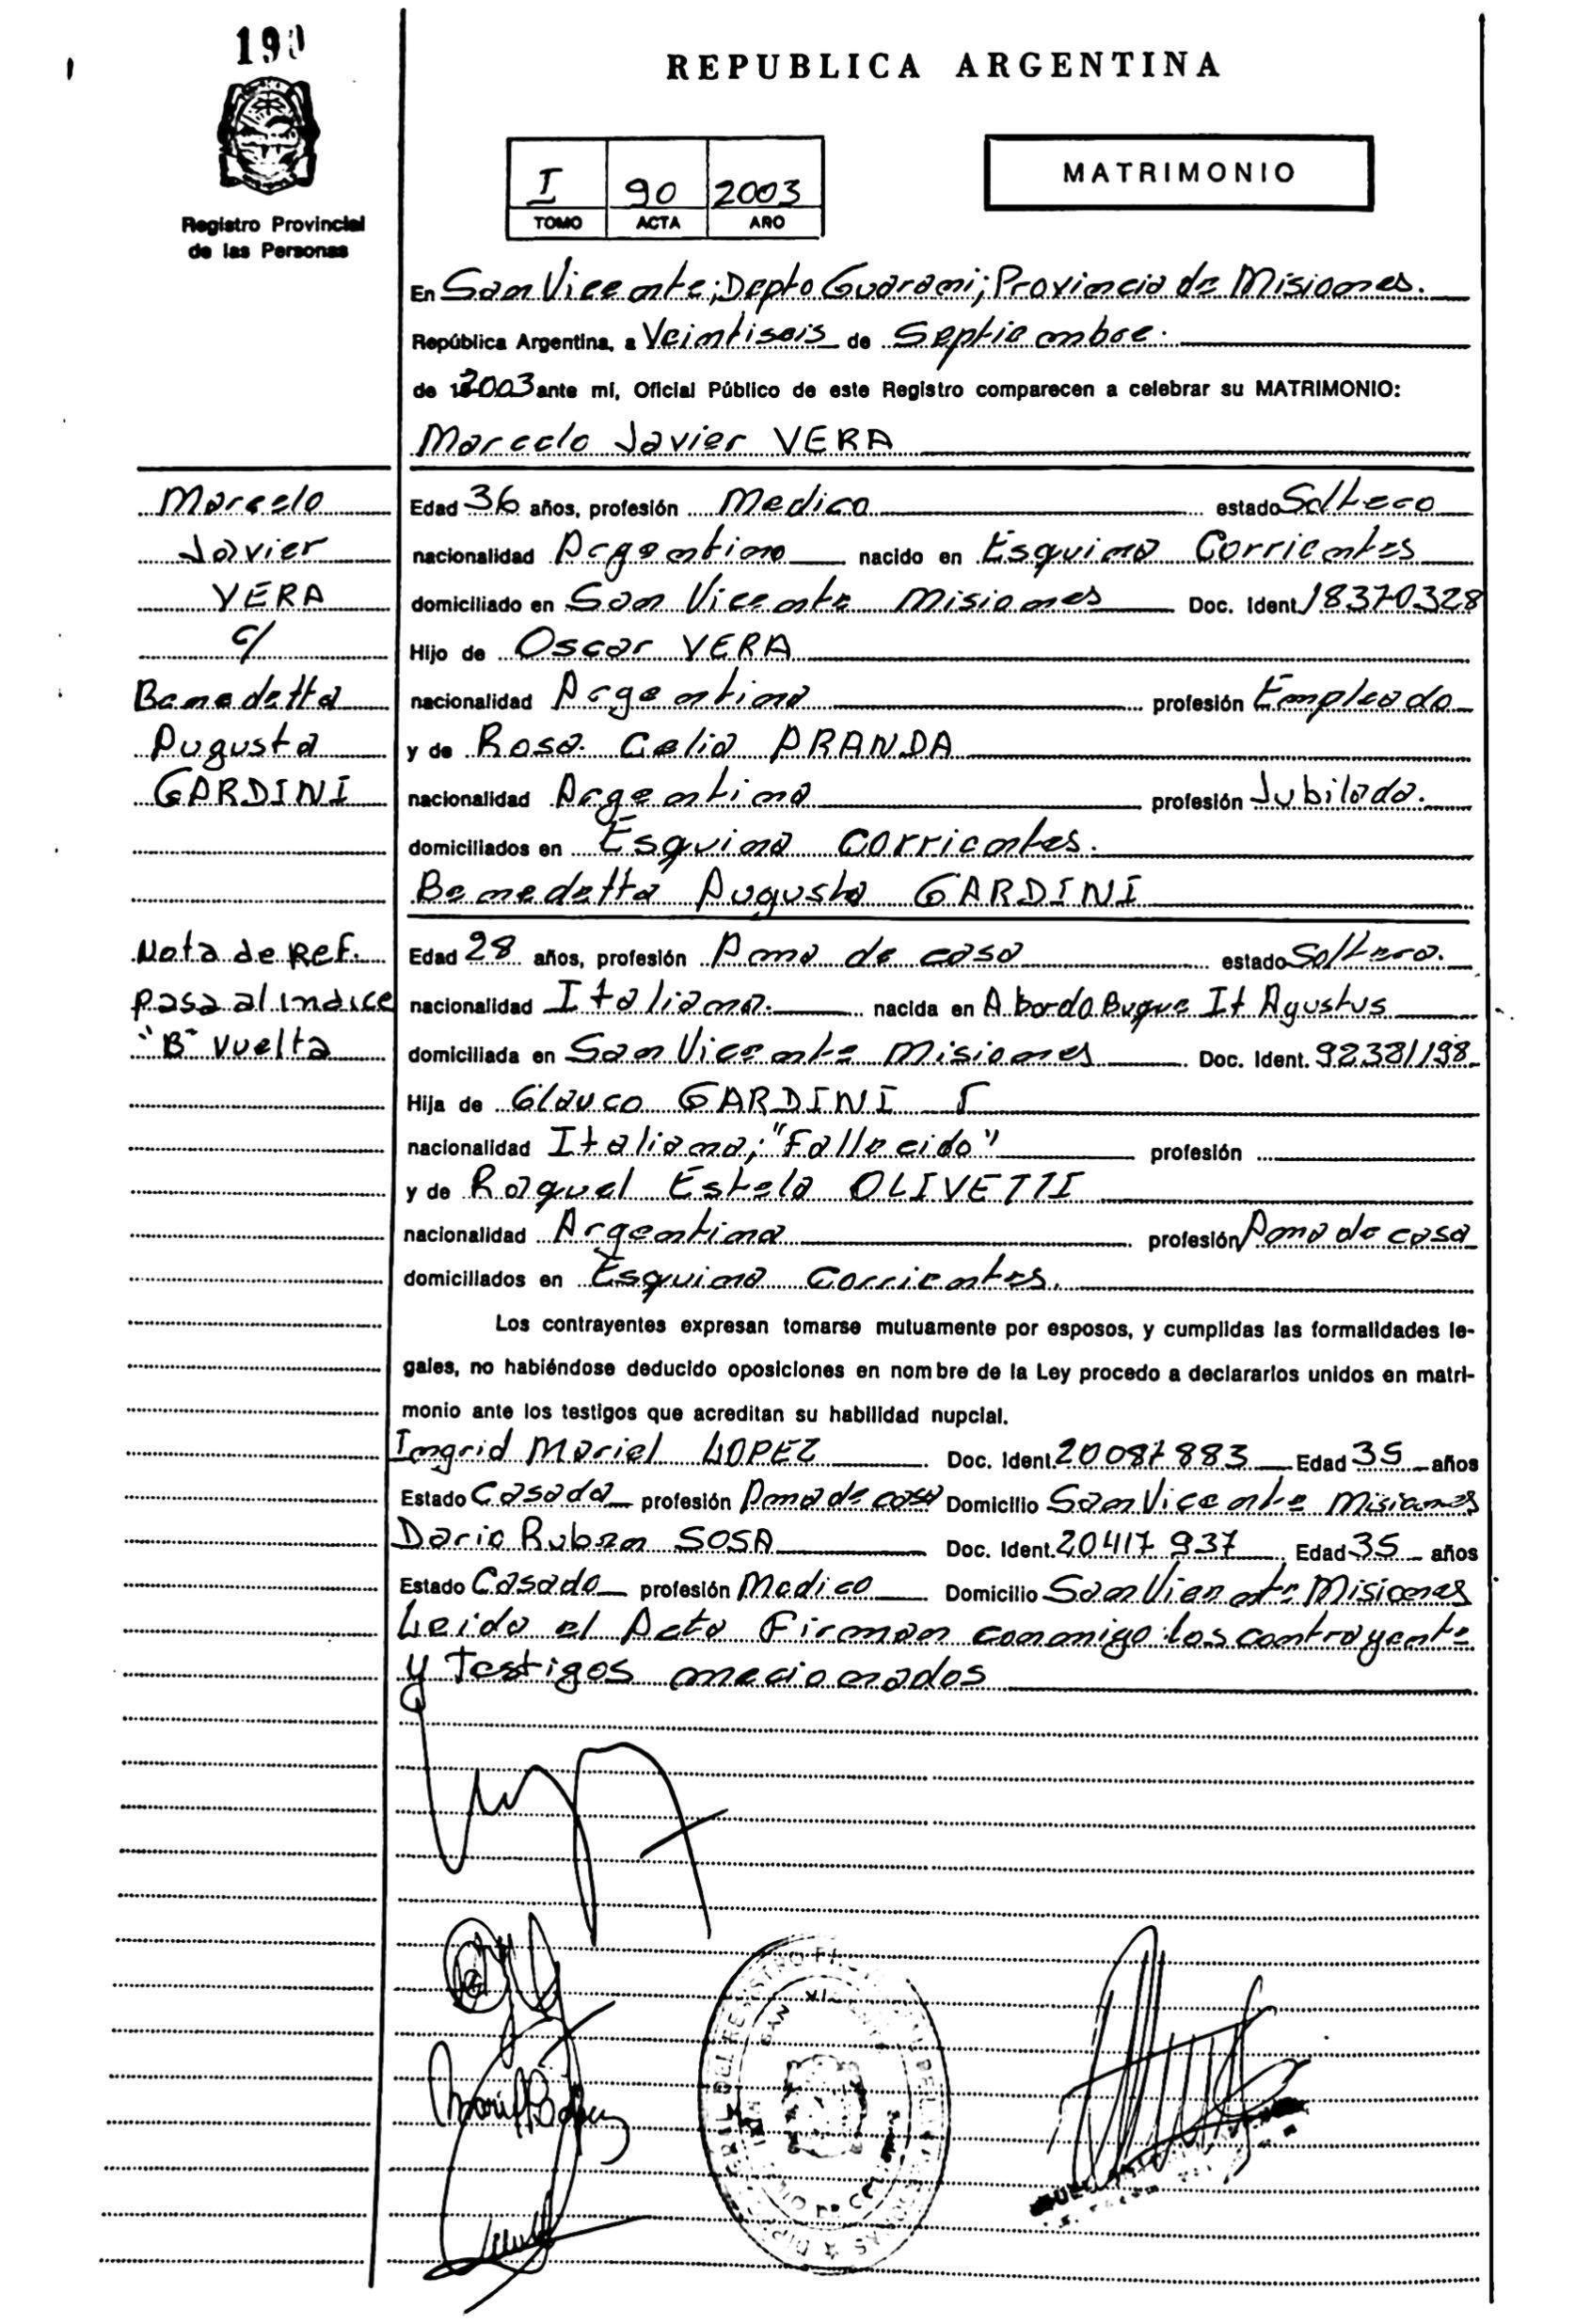 190
REPUBLICA ARGENTINA
Registro Provincial
de las Personas
I 90 2003
TOMO ACTA AÑO
MATRIMONIO
En San Vicente; Depto Guarani; Provincia de Misiones.
República Argentina, a Veintiseis de Septiembre.
de 2003 ante mí, Oficial Público de este Registro comparecen a celebrar su MATRIMONIO:
Marcelo Javier VERA
Marcelo
Javier
VERA
c/
Benedetta
Augusta
GARDINI
Edad 36 años, profesión Medico estado Soltero
nacionalidad Argentino nacido en Esquina Corrientes
domiciliado en San Vicente Misiones Doc. Ident. 18370328
Hijo de Oscar VERA
nacionalidad Argentina profesión Empleado
y de Rosa Celia ARANDA
nacionalidad Argentina profesión Jubilada.
domiciliados en Esquina Corrientes.
Benedetta Augusta GARDINI
Nota de Ref.
pasa al indice
"B" vuelta
Edad 28 años, profesión Ama de casa estado Soltera.
nacionalidad Italiana. nacida en A bordo Buque It Agustus
domiciliada en San Vicente Misiones Doc. Ident. 92381198
Hija de Glauco GARDINI
nacionalidad Italiana; "Fallecido" profesión
y de Raquel Estela OLIVETTI
nacionalidad Argentina profesión Ama de casa
domiciliados en Esquina Corrientes.
Los contrayentes expresan tomarse mutuamente por esposos, y cumplidas las formalidades le-
gales, no habiéndose deducido oposiciones en nombre de la Ley procedo a declararlos unidos en matri-
monio ante los testigos que acreditan su habilidad nupcial.
Ingrid Mariel LOPEZ Doc. Ident. 20087883 Edad 35 años
Estado Casada profesión Ama de casa Domicilio San Vicente Misiones
Dario Ruben SOSA Doc. Ident. 20417937 Edad 35 años
Estado Casado profesión Medico Domicilio San Viente Misiones
Leido el Acta Firman conmigo los contrayente
y Testigos mecionados